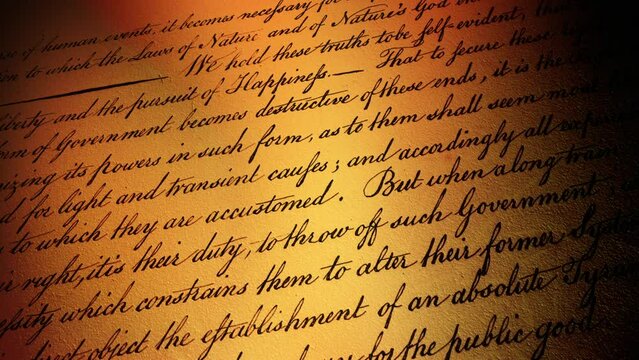 of human events, it becomes necessary for
to which the Laws of Nature and of Nature's God
We hold these truths to be self-evident, that
Liberty and the pursuit of Happineſs.— That to secure these
of Government becomes destructive of these ends, it is the
its powers in such form, as to them shall seem most
for light and transient cauſes; and accordingly all
to which they are accustomed. But when a long
right, it is their duty, to throw off such Government,
which constrains them to alter their former
object the eſtabliſhment of an absolute
for the public good.